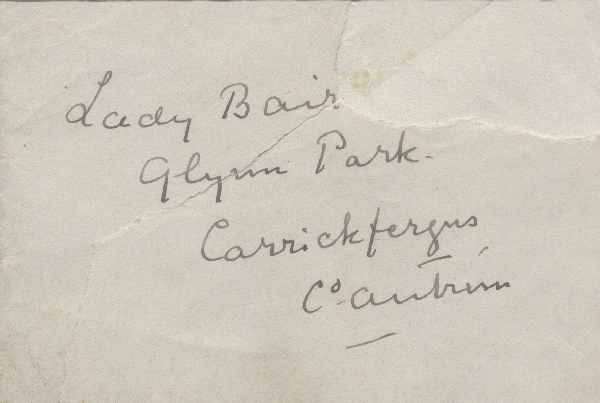 Lady Bair
Glynn Park.
Carrickfergus
Co. Antrim